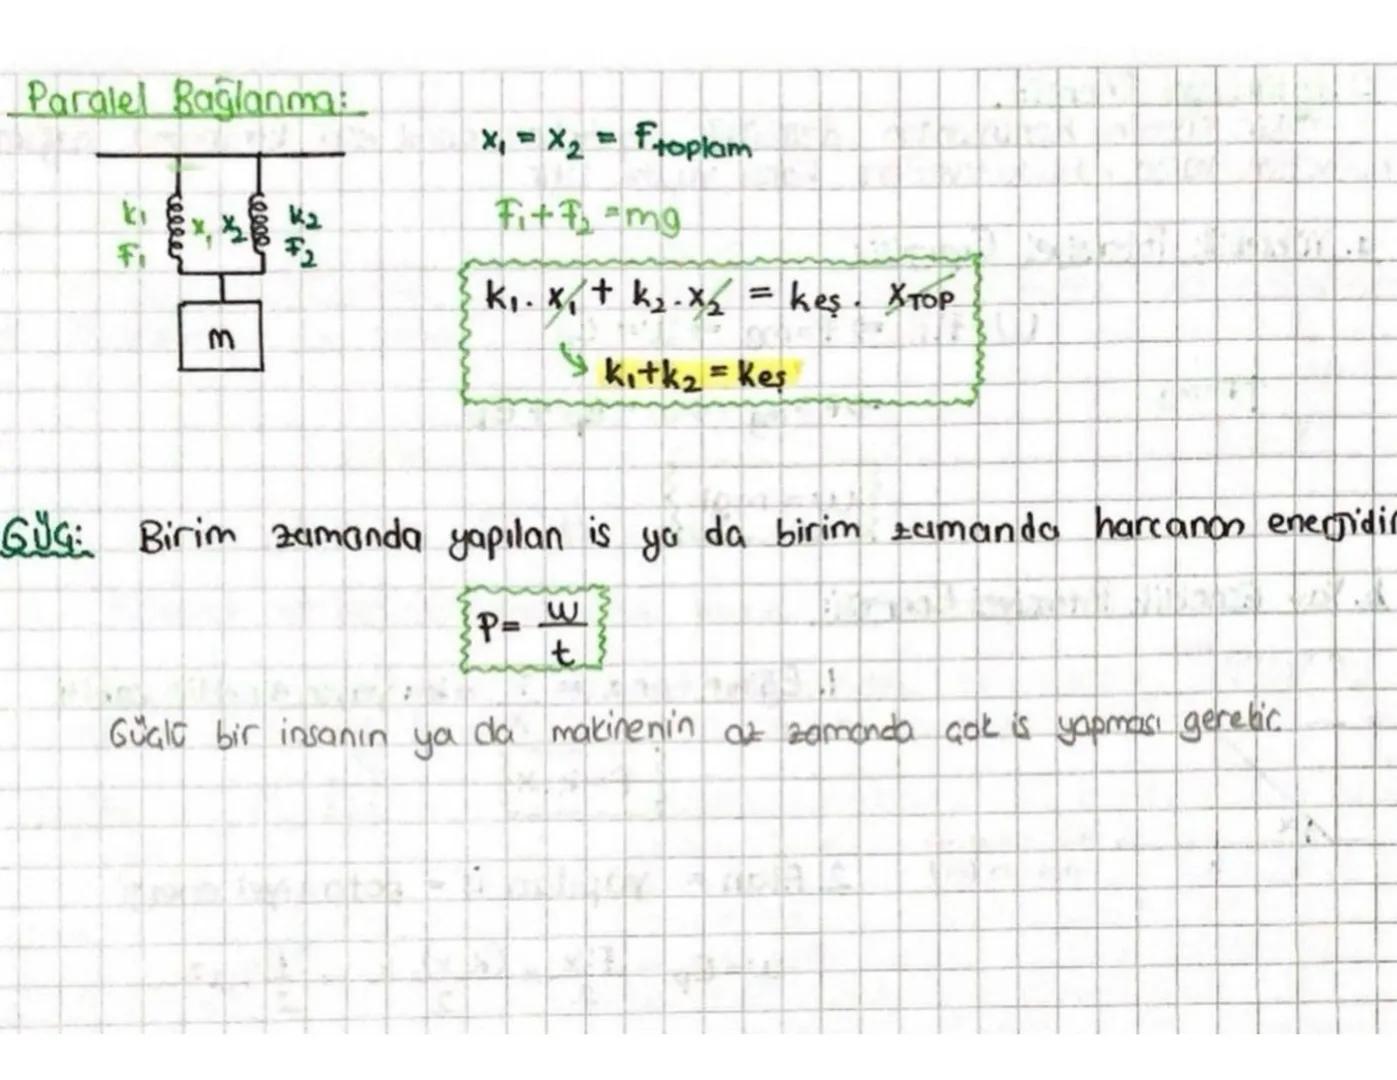 Paralel Bağlanma:
x₁ = x₂ = Ftoplam
k₁ x₁ x₂ k₂
F₁ F₂
F₁ + F₂ = mg
k₁ . x₁ + k₂ . x₂ = keş . xTOP
m
k₁+k₂ = keş
GÜÇ: Birim zamanda yapılan is ya da birim zamanda harcanan enerjidir
P = w/t
Güçlü bir insanın ya da makinenin az zamanda çok is yapması gerekir.